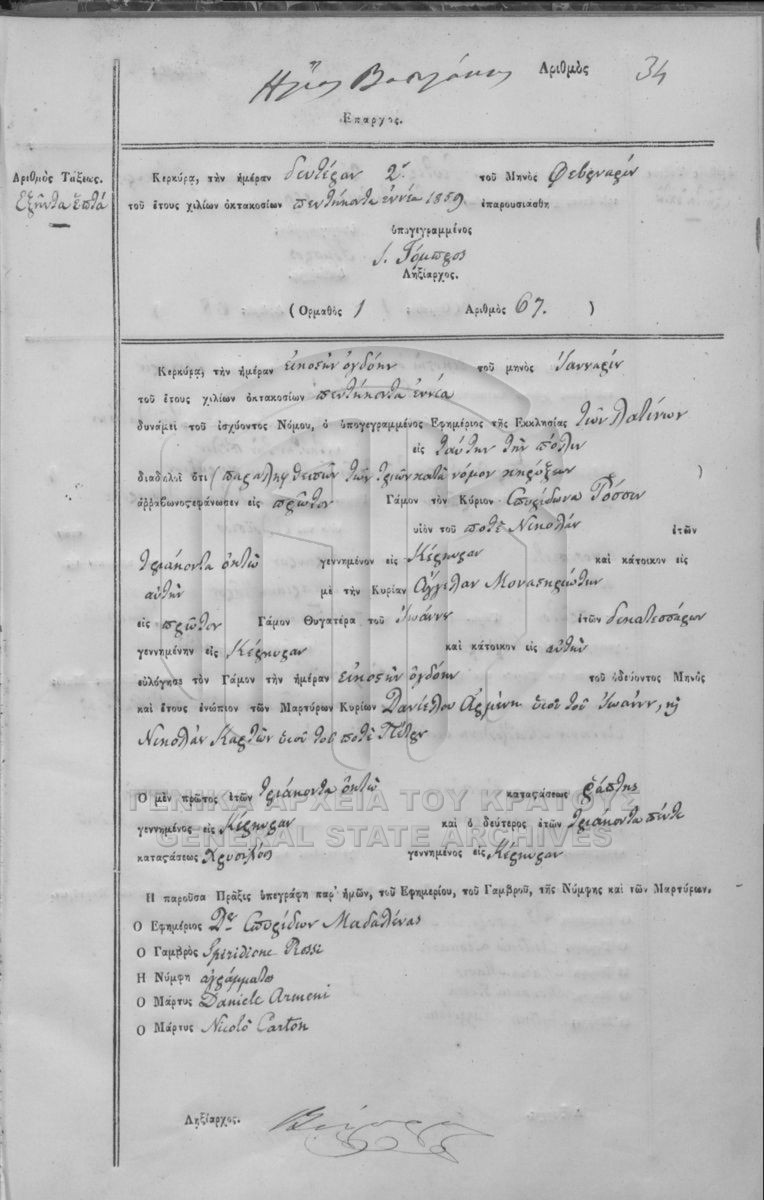 Αριθμὸς 34
Επαρχος.
Αριθμὸς Τάξεως.
Ἑξῆντα Ἑπτά
Κερκύρᾳ, τὴν ἡμέραν δευτέραν 2. τοῦ Μηνὸς Φεβρουαρίου
τοῦ ἔτους χιλίων ὀκτακοσίων πεντήκοντα ἐννέα 1859 ἐπαρουσιάσθη
ὑπογεγραμμένος
Ληξίαρχος.
(Ορμαθὸς 1 : Αριθμὸς 67. )
Κερκύρᾳ, τὴν ἡμέραν εἰκοστὴν ὀγδόην τοῦ μηνὸς Ἰανναρίου
τοῦ ἔτους χιλίων ὀκτακοσίων πεντήκοντα ἐννέα
δυνάμει τοῦ ἰσχύοντος Νόμου, ὁ ὑπογεγραμμένος Εφημέριος τῆς Εκκλησίας τῶν Λατίνων
εἰς ταύτην τὴν πόλιν
διαδηλοῖ ὅτι (παραληφθεισῶν τῶν τριῶν κατὰ νόμον κηρύξεων )
ἀῤῥαβωνοςεφάνωσεν εἰς πρῶτον Γάμον τὸν Κύριον Σπυρίδωνα Ῥόσσην
υἱὸν τοῦ ποτὲ Νικολάου ἐτῶν
τριάκοντα ὀκτὼ γεννημένον εἰς Κέρκυραν καὶ κάτοικον εἰς
αὐτὴν μὲ τὴν Κυρίαν Ἀγγέλαν Μοναστηριώτου
εἰς πρῶτον Γάμον Θυγατέρα τοῦ Ἰωάννου ἐτῶν δεκατεσσάρων
γεννημένην εἰς Κέρκυραν καὶ κάτοικον εἰς αὐτὴν
εὐλόγησε τὸν Γάμον τὴν ἡμέραν εἰκοστὴν ὀγδόην τοῦ ὁδεύοντος Μηνὸς
καὶ ἔτους ἐνώπιον τῶν Μαρτύρων Κυρίων Δανιέλου Ἀρμένη υἱοῦ τοῦ Ἰωάννου, καὶ
Νικολάου Καρτὼν υἱοῦ τοῦ ποτὲ Πέτρου
Ὁ μὲν πρῶτος ἐτῶν τριάκοντα ὀκτὼ καταςάσεως ῥάπτης
γεννημένος εἰς Κέρκυραν καὶ ὁ δεύτερος ἐτῶν τριάκοντα πέντε
καταςάσεως Χρυσοχόος γεννημένος εἰς Κέρκυραν
ΓΕΝΙΚΑ ΑΡΧΕΙΑ ΤΟΥ ΚΡΑΤΟΥΣ
GENERAL STATE ARCHIVES
Η παροῦσα Πρᾶξις ὑπεγράφη παρ' ἡμῶν, τοῦ Εφημερίου, τοῦ Γαμβροῦ, τῆς Νύμφης καὶ τῶν Μαρτύρων.
Ο Εφημέριος Dn Σπυρίδων Μαδαλένας
Ο Γαμβρὸς Speridione Rossi
Η Νύμφη ἀγράμματος
Ο Μάρτυς Daniele Armeni
Ο Μάρτυς Nicolò Carton
Ληξίαρχος.